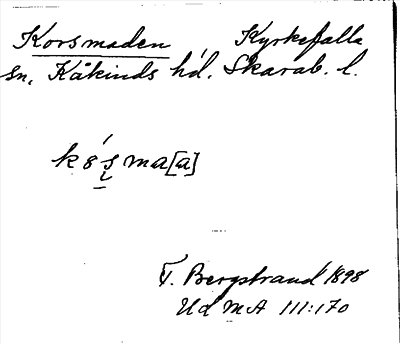 Korsmaden Kyrkefalla
sn, Kåkinds hd. Skarab. l.
k8s̨ ma[a]
T. Bergstrand 1898
Ud MA III:170